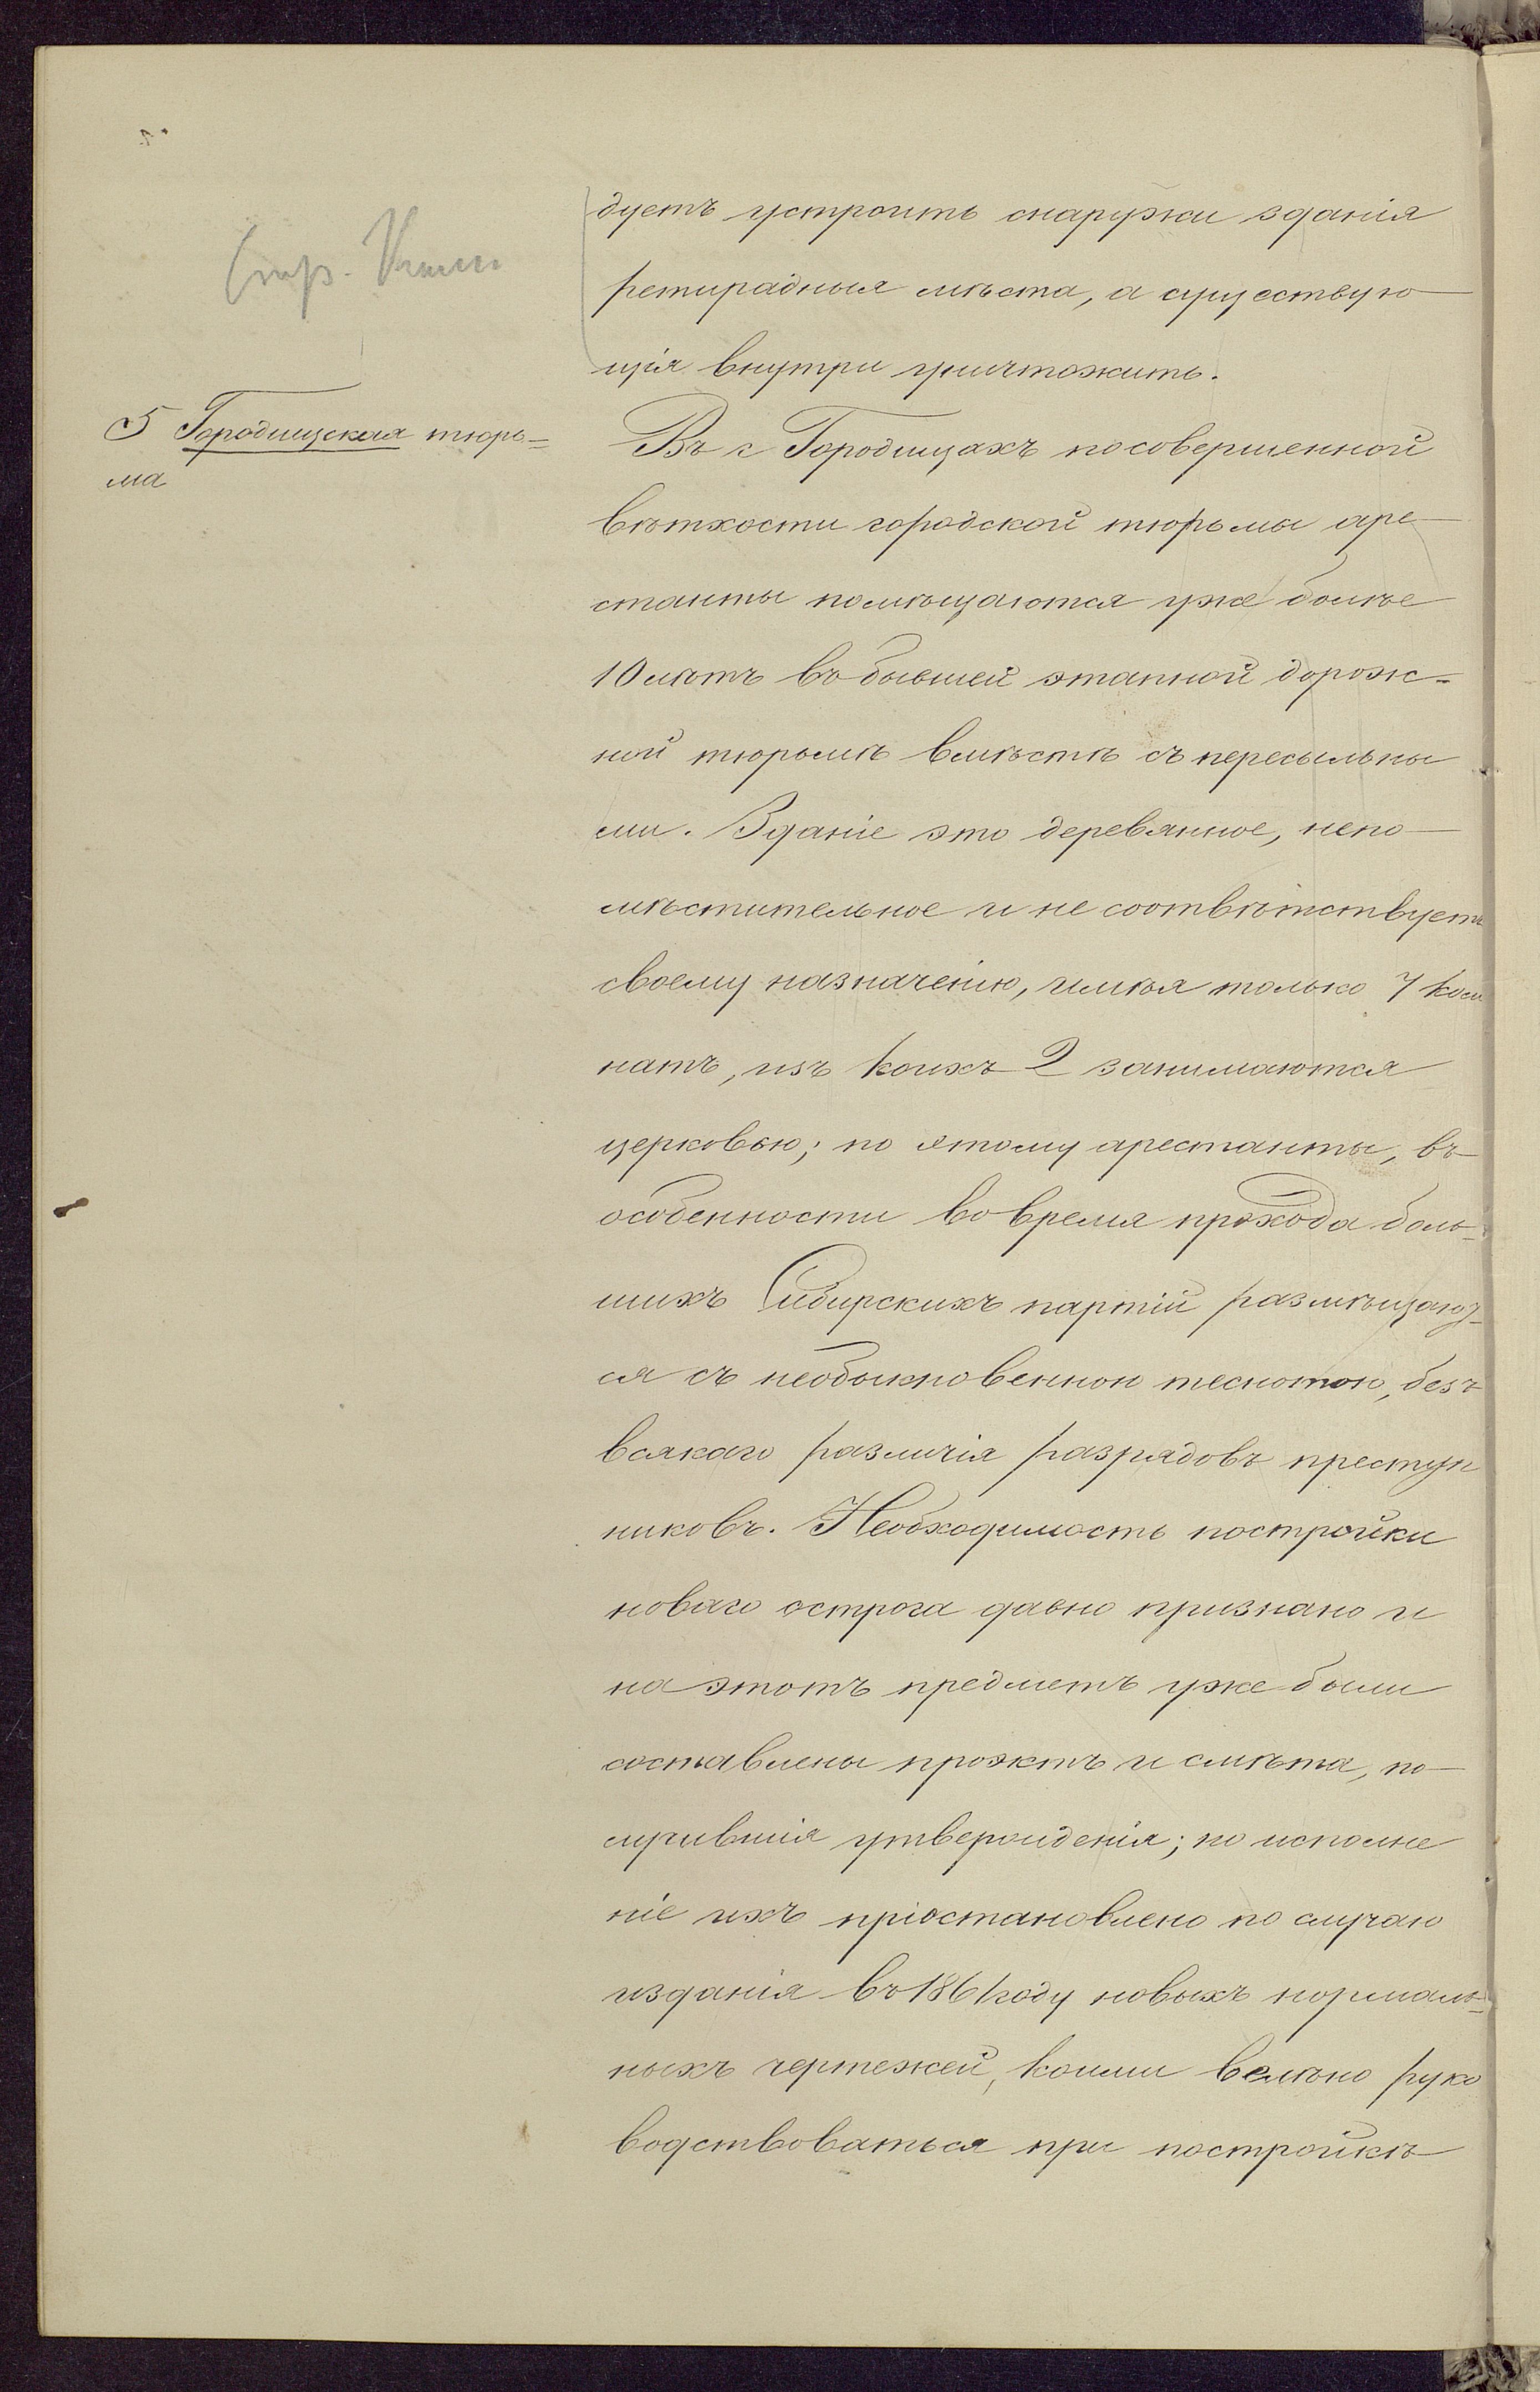 дуетъ устроить снаружи зданія
ретирадныя мѣста, а существую
щія внутри уничтожить.
5 Городищская тюрь=
ма
Въ г Городищахъ по совершенной
вѣтхости городской тюрьмы аре
станты помѣщаются уже болѣе
10 лѣтъ въ бывшей этапной дорож-
ной тюрьмѣ вмѣстѣ съ пересыльны
ми. Зданіе это деревянное, непо
мѣстительное и не соотвѣтствуетъ
своему назначенію, имѣя только 7 ком
натъ, изъ коихъ 2 занимаются
церковью; по этому арестанты, въ
особенности во время прохода боль-
шихъ Сибирскихъ партій размѣщают-
ся съ необыкновенною теснотою, безъ
всякаго различія разрядовъ преступ
никовъ. Необходимость постройки
новаго острога давно признано и
на этотъ предметъ уже были
составлены проэктъ и смѣта, по
лучившія утвержденія; но исполне
ніе ихъ пріостановлено по случаю
изданія въ 1861 году новыхъ нормаль-
ныхъ чертежей, коими велѣно руко
водствоваться при постройкѣ